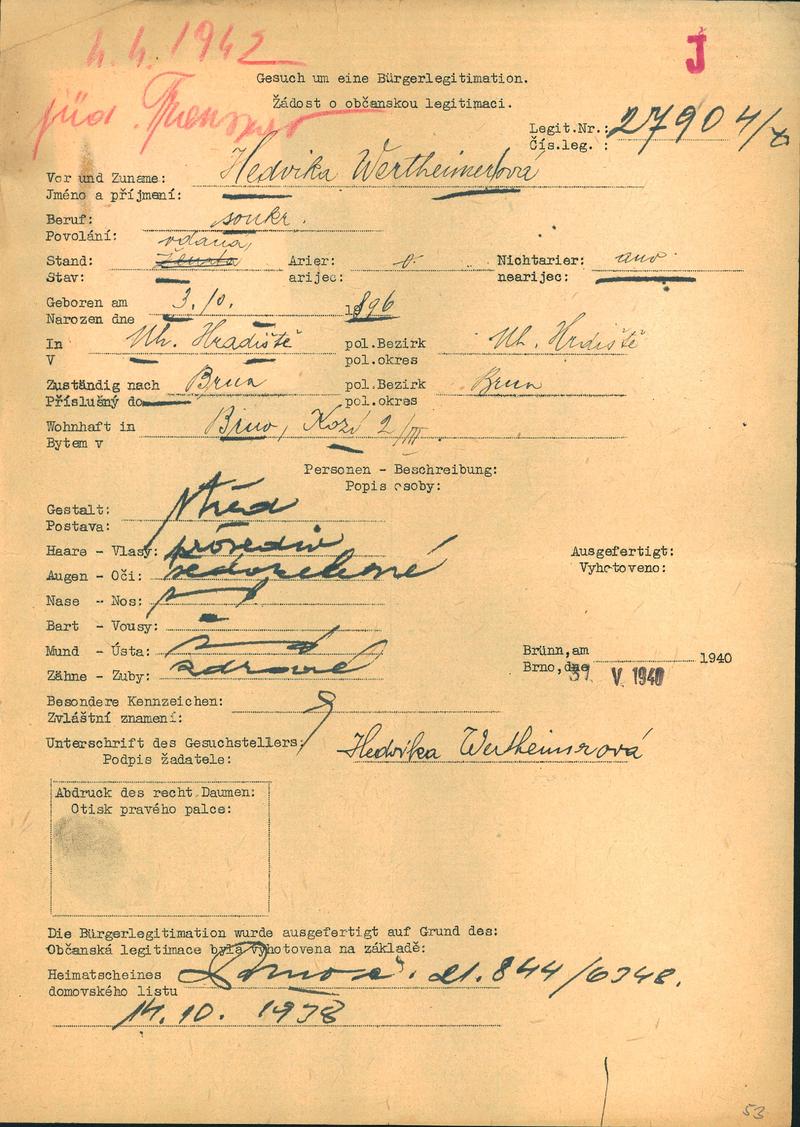 4.4.1942
J
jüd. Transport
Gesuch um eine Bürgerlegitimation.
Žádost o občanskou legitimaci.
Legit.Nr.: 27904/
Čís.leg. :
Vor und Zuname: Hedvika Wertheimerová
Jméno a příjmení:
Beruf: soukr.
Povolání:
vdaná,
Stand: ženatá Arier: 0 Nichtarier: ano
Stav: arijec: nearijec:
Geboren am 3./10. 1896
Narozen dne
In Uh. Hradiště pol.Bezirk Uh. Hrdiště
V pol.okres
Zuständig nach Brna pol.Bezirk Brna
Příslušný do pol.okres
Wohnhaft in Brno, Kozí 2/III.
Bytem v
Personen - Beschreibung:
Popis osoby:
Gestalt: střed
Postava:
Haare - Vlasy: prošediv
Augen - Oči: šedozelené
Ausgefertigt:
Vyhotoveno:
Nase - Nos:
Bart - Vousy: -
Mund - Ústa:
Zähne - Zuby: zdravé
Brünn,am 1940
Brno,dne 31. V. 1940
Besondere Kennzeichen:
Zvláštní znamení:
Unterschrift des Gesuchstellers: Hedvika Wertheimrová
Podpis žadatele:
Abdruck des recht.Daumen:
Otisk pravého palce:
Die Bürgerlegitimation wurde ausgefertigt auf Grund des:
Občanská legitimace byla vyhotovena na základě:
Heimatscheines čl. 844/6348.
domovského listu
14.10. 1938
53